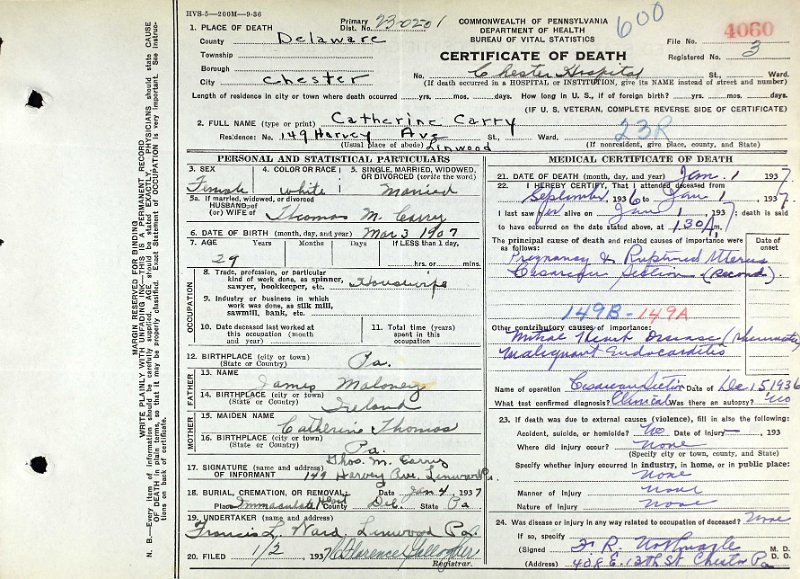 HVS-5-200M-9-36
Primary Dist. No. 23-020-1
600
4060
COMMONWEALTH OF PENNSYLVANIA
DEPARTMENT OF HEALTH
BUREAU OF VITAL STATISTICS
File No.
CERTIFICATE OF DEATH
Registered No. 3
1. PLACE OF DEATH
County Delaware
Township
Borough
City Chester
No. Chester Hospital St., Ward.
(If death occurred in a HOSPITAL or INSTITUTION, give its NAME instead of street and number)
Length of residence in city or town where death occurred yrs. mos. days. How long in U. S., if of foreign birth? yrs. mos. days.
(IF U. S. VETERAN, COMPLETE REVERSE SIDE OF CERTIFICATE)
2. FULL NAME (type or print) Catherine Carry
Residence: No. 149 Harvey Ave St., Ward. 23R
(Usual place of abode) Linwood (If nonresident, give place, county, and State)
PERSONAL AND STATISTICAL PARTICULARS
3. SEX Female
4. COLOR OR RACE white
5. SINGLE, MARRIED, WIDOWED, OR DIVORCED (write the word) Married
5a. If married, widowed, or divorced
HUSBAND of
(or) WIFE of Thomas M. Carry
6. DATE OF BIRTH (month, day, and year) Mar 3 1907
7. AGE Years Months Days If LESS than 1 day,
29 hrs. or mins.
OCCUPATION
8. Trade, profession, or particular kind of work done, as spinner, sawyer, bookkeeper, etc. Housewife
9. Industry or business in which work was done, as silk mill, sawmill, bank, etc.
10. Date deceased last worked at this occupation (month and year)
11. Total time (years) spent in this occupation
12. BIRTHPLACE (city or town) Pa.
(State or Country)
FATHER
13. NAME James Maloney
14. BIRTHPLACE (city or town) Ireland
(State or Country)
MOTHER
15. MAIDEN NAME Catherine Thomas
16. BIRTHPLACE (city or town) Pa.
(State or Country)
17. SIGNATURE (name and address) OF INFORMANT Thos. M. Carry
149 Harvey Ave. Linwood Pa.
18. BURIAL, CREMATION, OR REMOVAL: Date Jan 4 1937
Place Immaculate Heart Del. State Pa
19. UNDERTAKER (name and address)
Francis L. Ward. Linwood Pa.
20. FILED 1/2, 1937 Florence Gallagher
Registrar.
MEDICAL CERTIFICATE OF DEATH
21. DATE OF DEATH (month, day, and year) Jan. 1 1937
22. I HEREBY CERTIFY, That I attended deceased from
September, 1936 to Jan 1, 1937.
I last saw her alive on Jan 1, 1937; death is said
to have occurred on the date stated above, at 1.30 A.m.
The principal cause of death and related causes of importance were as follows:
Date of onset
Pregnancy & Ruptured Uterus
Cesarean Section (second)
149B-149A
Other contributory causes of importance:
Mitral Heart Disease (rheumatic)
Malignant Endocarditis
Name of operation Cesarean Section Date of Dec 15 1936
What test confirmed diagnosis? Clinical Was there an autopsy? no
23. If death was due to external causes (violence), fill in also the following:
Accident, suicide, or homicide? No Date of injury - , 193
Where did injury occur? None
(Specify city or town, county, and State)
Specify whether injury occurred in industry, in home, or in public place:
None
Manner of Injury none
Nature of Injury None
24. Was disease or injury in any way related to occupation of deceased? None
If so, specify
(Signed) M. D.
(Address) 408 E. 13th St Chester Pa D. O.
MARGIN RESERVED FOR BINDING
WRITE PLAINLY WITH UNFADING INK—THIS IS A PERMANENT RECORD
N. B.—Every item of information should be carefully supplied. AGE should be stated EXACTLY. PHYSICIANS should state CAUSE OF DEATH in plain terms, so that it may be properly classified. Exact Statement of OCCUPATION is very important. See instructions on back of certificate.